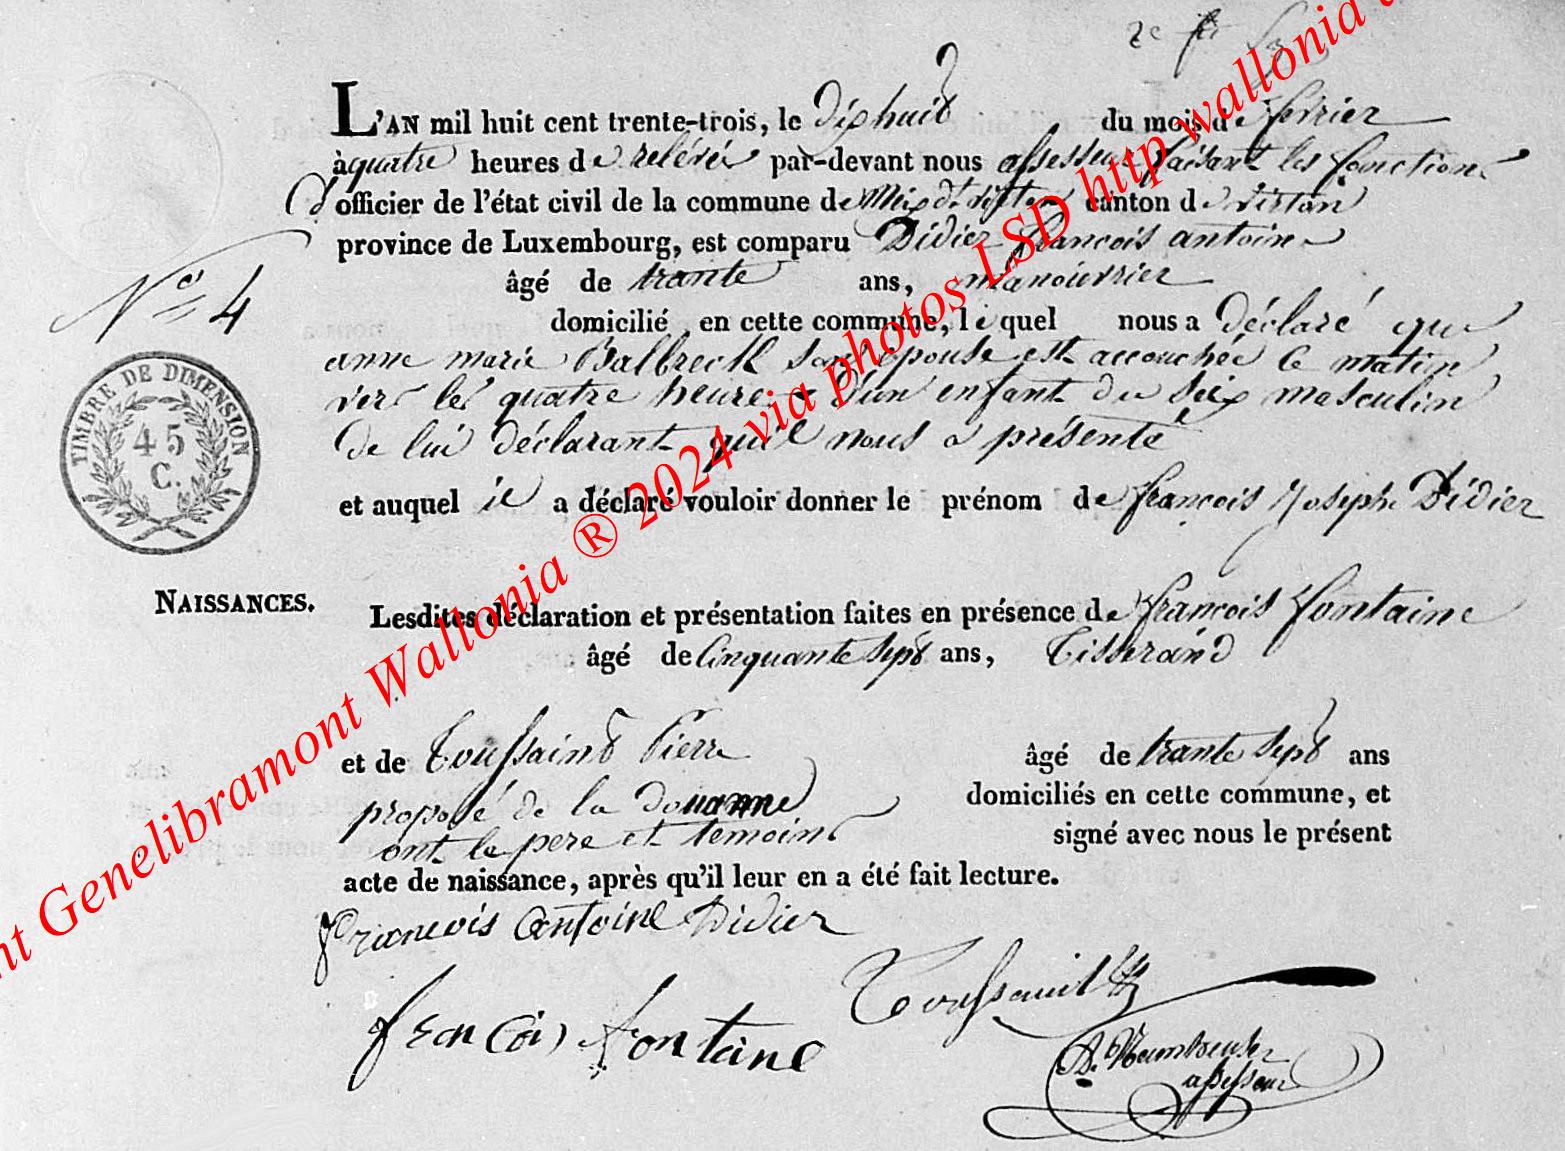 L'AN mil huit cent trente-trois, le dix huit du mois de fevrier
à quatre heures de relévé par-devant nous assesseur faisant les fonctions
d'officier de l'état civil de la commune de Meix dt virton canton de virton
province de Luxembourg, est comparu Didier françois antoine
âgé de trante ans, manouvrier
N° 4
domicilié en cette commune, le quel nous a déclaré que
anne marie Balbreck son épouse est accouchée ce matin
vers les quatre heures d'un enfant du sexe masculin
de lui déclarant qu'il nous a présenté
TIMBRE DE DIMENSION
45
C.
et auquel il a déclaré vouloir donner le prénom de françois Joseph Didier
NAISSANCES.
Lesdites déclaration et présentation faites en présence de françois fontaine
âgé de cinquante sept ans, Tisserand
et de Toussaint Pierre âgé de trante sept ans
proposé de la douanne domiciliés en cette commune, et
ont le pere et temoins signé avec nous le présent
acte de naissance, après qu'il leur en a été fait lecture.
françois Antoine Didier
Toussaint
françois fontaine
assesseur
Genelibramont Wallonia ® 2024 via photos LSD http wallonia